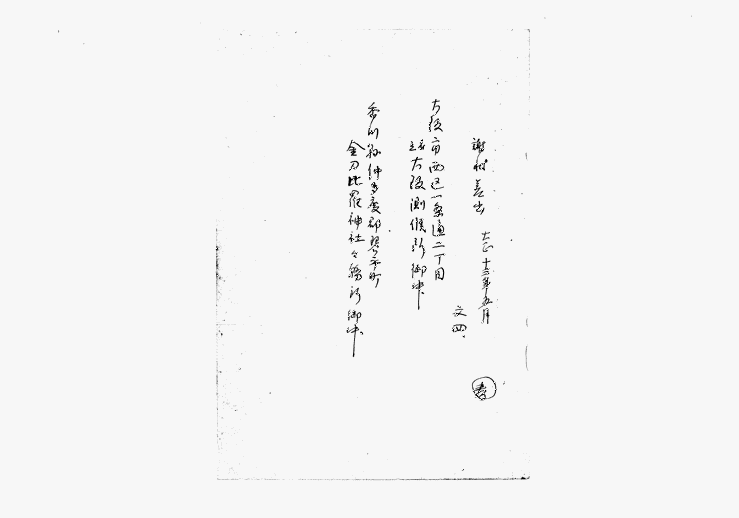 謝状差出 大正十三年五月
文四、
大阪市西区一条通二丁目
大阪測候所御中
香川縣仲多度郡琴平町
金刀比羅神社々務所御中